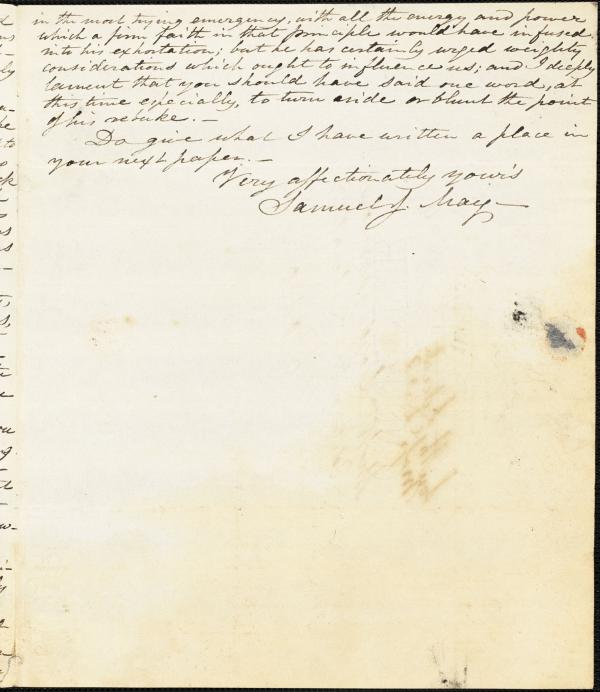 in the most trying emergency, with all the energy and power
which a firm faith in that principle would have infused
into his exhortation; but he has certainly urged weighty
considerations which ought to influence us; and I deeply
lament that you should have said one word, at
this time especially, to turn aside or blunt the point
of his rebuke. —
Do give what I have written a place in
your next paper. —
Very affectionately your's
Samuel J. May —